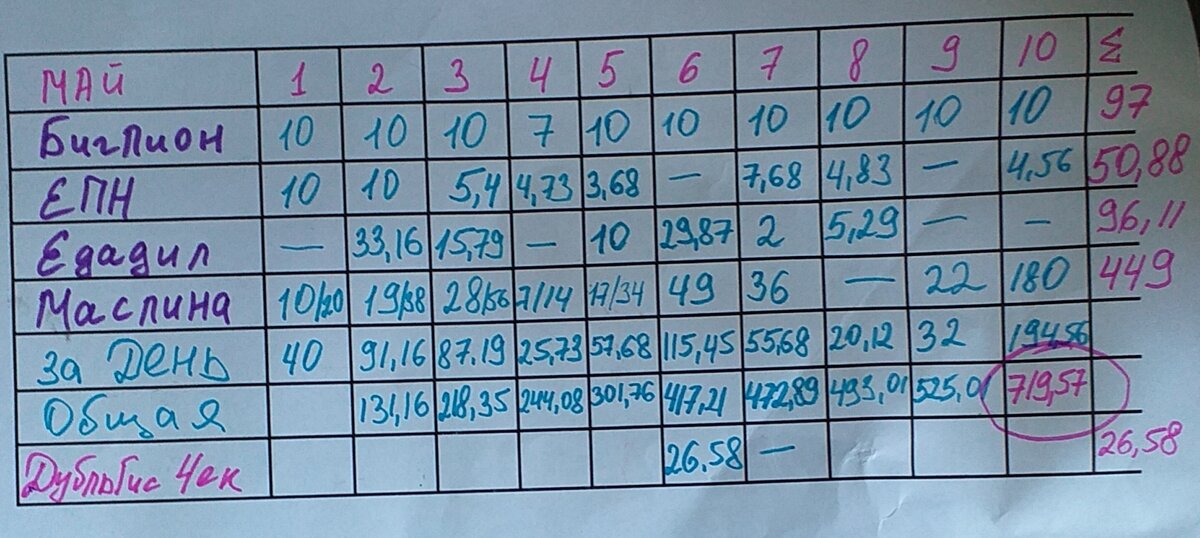 МАЙ 1 2 3 4 5 6 7 8 9 10 Σ
Биглион 10 10 10 7 10 10 10 10 10 10 97
ЕПН 10 10 5,4 4,73 3,68 — 7,68 4,83 — 4,56 50,88
Едадил — 33,16 15,79 — 10 29,87 2 5,29 — — 96,11
Маслина 10/20 19/38 28/56 7/14 17/34 49 36 — 22 180 449
За День 40 91,16 87.19 25,73 57,68 115,45 55,68 20,12 32 194,56
Общая 131,16 218,35 244,08 301,76 417,21 472,89 493,01 525,01 719,57
ДубльГис Чек 26.58 — 26,58